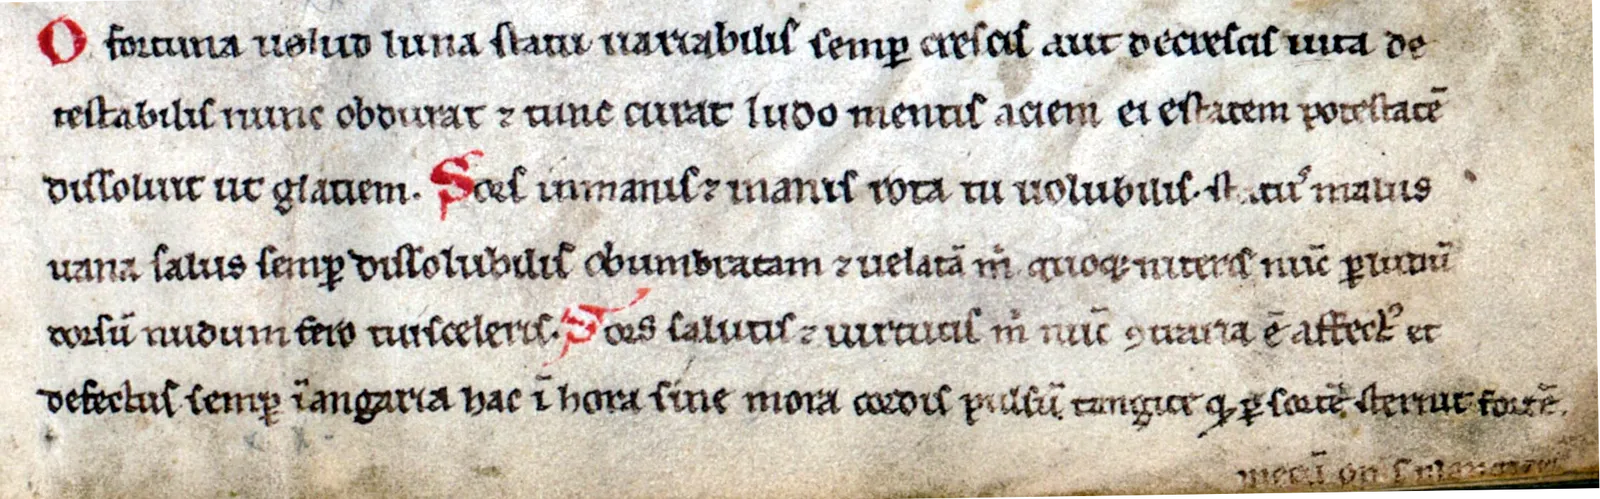 O fortuna uelud luna statu uariabilis semꝑ crescis aut decrescis uita de
testabilis nunc obdurat ⁊ tunc curat ludo mentis aciem egestatem potestatē
dissoluit ut glaciem. Sors inmanis ⁊ inanis rota tu uolubilis. status malus
uana salus semꝑ dissolubilis obumbratam ⁊ uelatā m̄ quoqꝫ niteris nūc ꝑ ludū
dorsū nudum fero tui sceleris. Sors salutis ⁊ uirtutis m̄ nūc ꝯtraria ē affectꝰ et
defectus semꝑ ī angaria hac ī hora sine mora cordis pulsū tangite ꝙ ꝑ sortē sternit fortē.
mecū on̄s